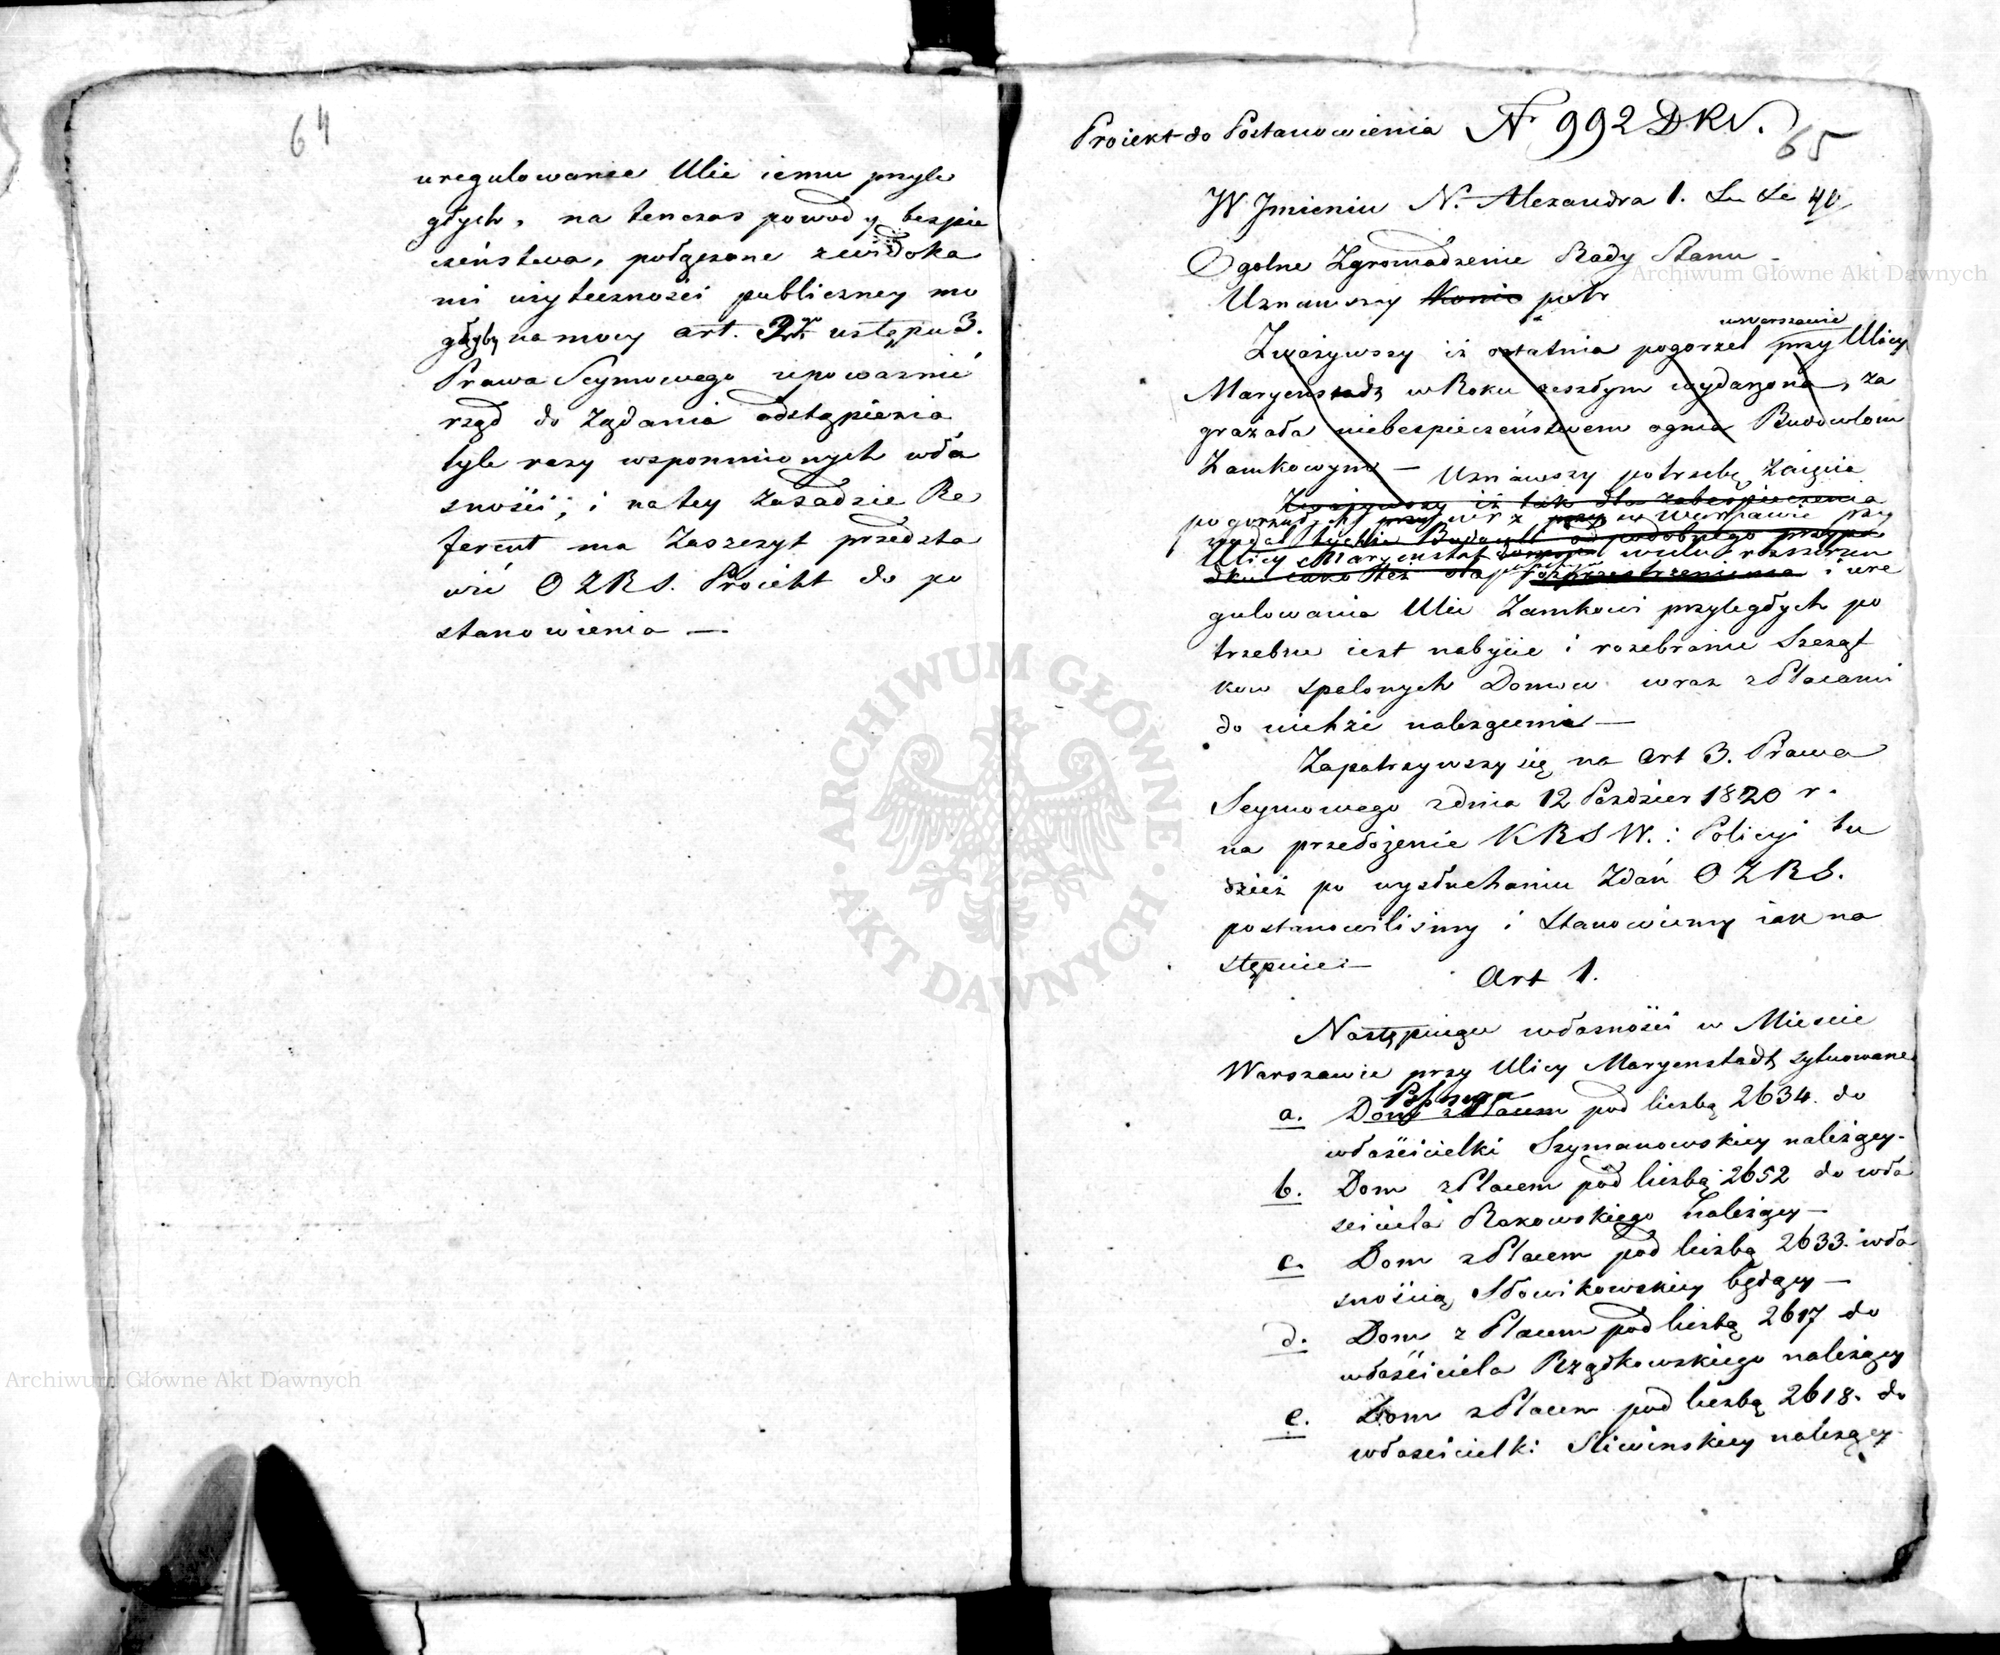 64
uregulowanie Ulic iemu przyle
głych, na tenczas powody bespie
czeństwa, połączone zwidoka
mi użyteczności publiczney mo
głyby na mocy art. ustępu 3.
Prawa Seymowego upoważnić
rząd do żądania odstąpienia
tyle razy wspomnionych wła
sności; i na tey zasadzie Re
ferent ma Zaszczyt przedsta
wić OZRS. Proiekt do po
stanowienia —
Proiekt do Postanowienia Nr 992 D.R.S.
65
W Jmieniu N. Alexandra 1.
Ogólne Zgromadzenie Rady Stanu
Uznawszy potr
w Warszawie
Zważywszy iż ostatnia pogorzel przy Ulicy
Maryensadz w Roku zeszłym wydarzona, za
grażała niebespieczeństwem ognia Budowlom
Zamkowym — Uznawszy potrzebę zaięcia
Zważywszy iż tak dla zabespieczenia
pogorzałych w Warszawie przy
od podobnego przypa
Ulicy Maryenstat celu rozszerzen
dku iako też dla rozprzestrzenienia i ure
gulowania Ulic Zamkowi przyległych po
trzebne iest nabycie i rozebranie Szcząt
kow spalonych Domow wraz z Placami
do nichże należącemi —
Zapatrzywszy się na Art 3. Prawa
Seymowego z dnia 12 Paździer 1820 r.
na przełożenie KRSW.: Policyi tu
dzież po wysłuchaniu Zdań OZRS.
postanowiliśmy i Stanowiemy iak na
stępuie:—
Art 1.
Następuiące własności w Mieście
Warszawie przy Ulicy Maryenstadt sytuowane
a. Dom z Placem pod liczbą 2634. do
właścicielki Szymanowskiey należący.
b. Dom z Placem pod liczbą 2652 do wła
ściciela Rakowskiego należący —
c. Dom z Placem pod liczbą 2633. wła
snością Słowikowskiey będący —
d. Dom z Placem pod liczbą 2617 do
właściciela Rządkowskiego należący
e. Dom z Placem pod liczbą 2618. do
właścicielki Sliwinskiey należący.
ARCHIWUM GŁÓWNE AKT DAWNYCH
Archiwum Główne Akt Dawnych
Archiwum Główne Akt Dawnych